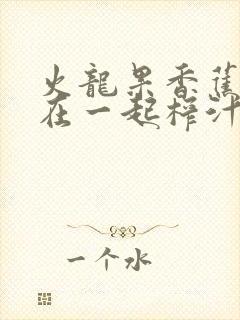 火龍果香蕉
在一起榨汁
一个水